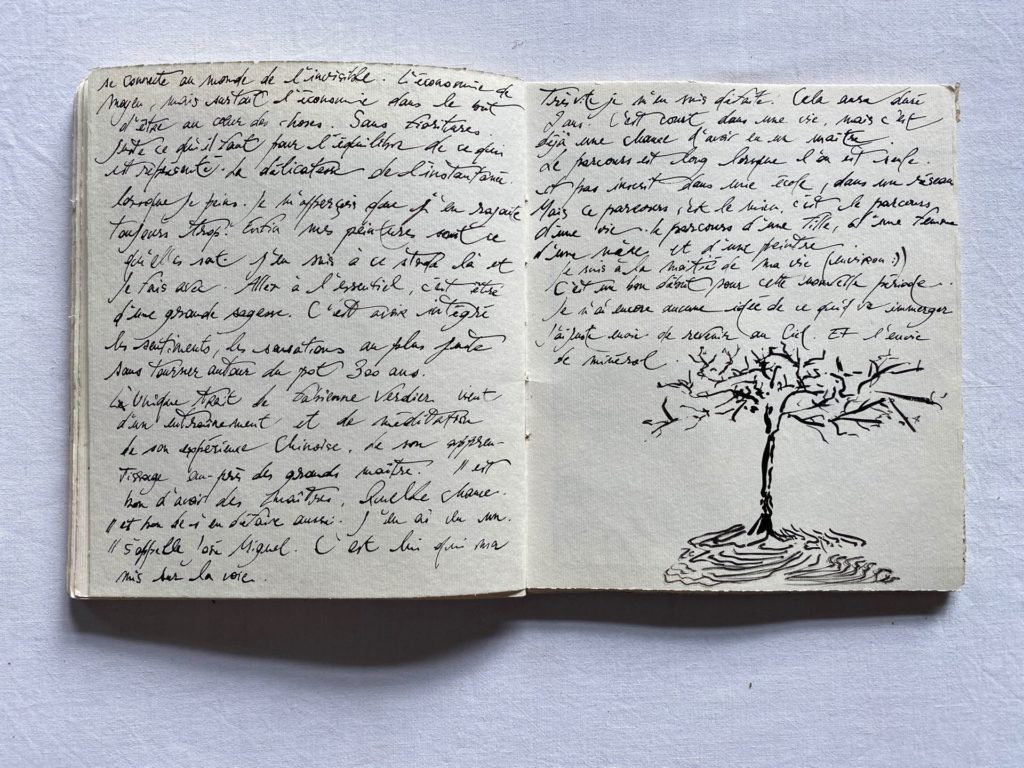 se connecte au monde de l'invisible. L'économie de
moyen, mais surtout l'économie dans le
d'être au cœur des choses. Sans fioritures.
Juste ce qu'il faut pour l'équilibre de ce qui
est représenté. La délicatesse de l'instantané.
lorsque je peins. Je m'aperçois que j'en rajoute
toujours trop. Enfin mes peintures sont ce
qu'elles sont j'en suis à ce stade là et
je fais avec. Aller à l'essentiel, c'est être
d'une grande sagesse. C'est avoir intégré
les sentiments, les sensations au plus juste
sans tourner autour du pot 300 ans.
L'Unique trait de Fabienne Verdier vient
d'un entraînement et de méditation
de son expérience Chinoise, de son appren-
tissage au-près des grands maître. Il est
bon d'avoir des maîtres, Quelle chance.
Il est bon de s'en défaire aussi. J'en ai eu un.
Il s'appelle José Miguel. C'est lui qui ma
mis sur la voie.
Très vite je m'en suis défaite. Cela aura duré
9 ans. C'est court dans une vie, mais c'est
déjà une chance d'avoir eu un maître
Le parcours est long lorsque l'on est seule.
et pas inscrit dans une école, dans un réseau
Mais ce parcours, c'est le mien, c'est le parcours
d'une vie. le parcours d'une fille, d'une femme
d'une mère et d'une peintre.
Je suis à la moitié de ma vie (environ :))
C'est un bon début pour cette nouvelle période.
Je n'ai encore aucune idée de ce qui va immerger
J'ai juste envie de revenir au Ciel. Et l'envie
de minéral.